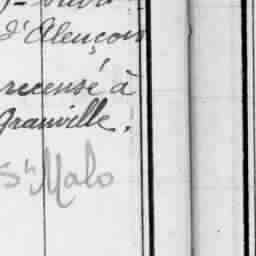 d'Alençon
recensé à
Granville.
St Malo